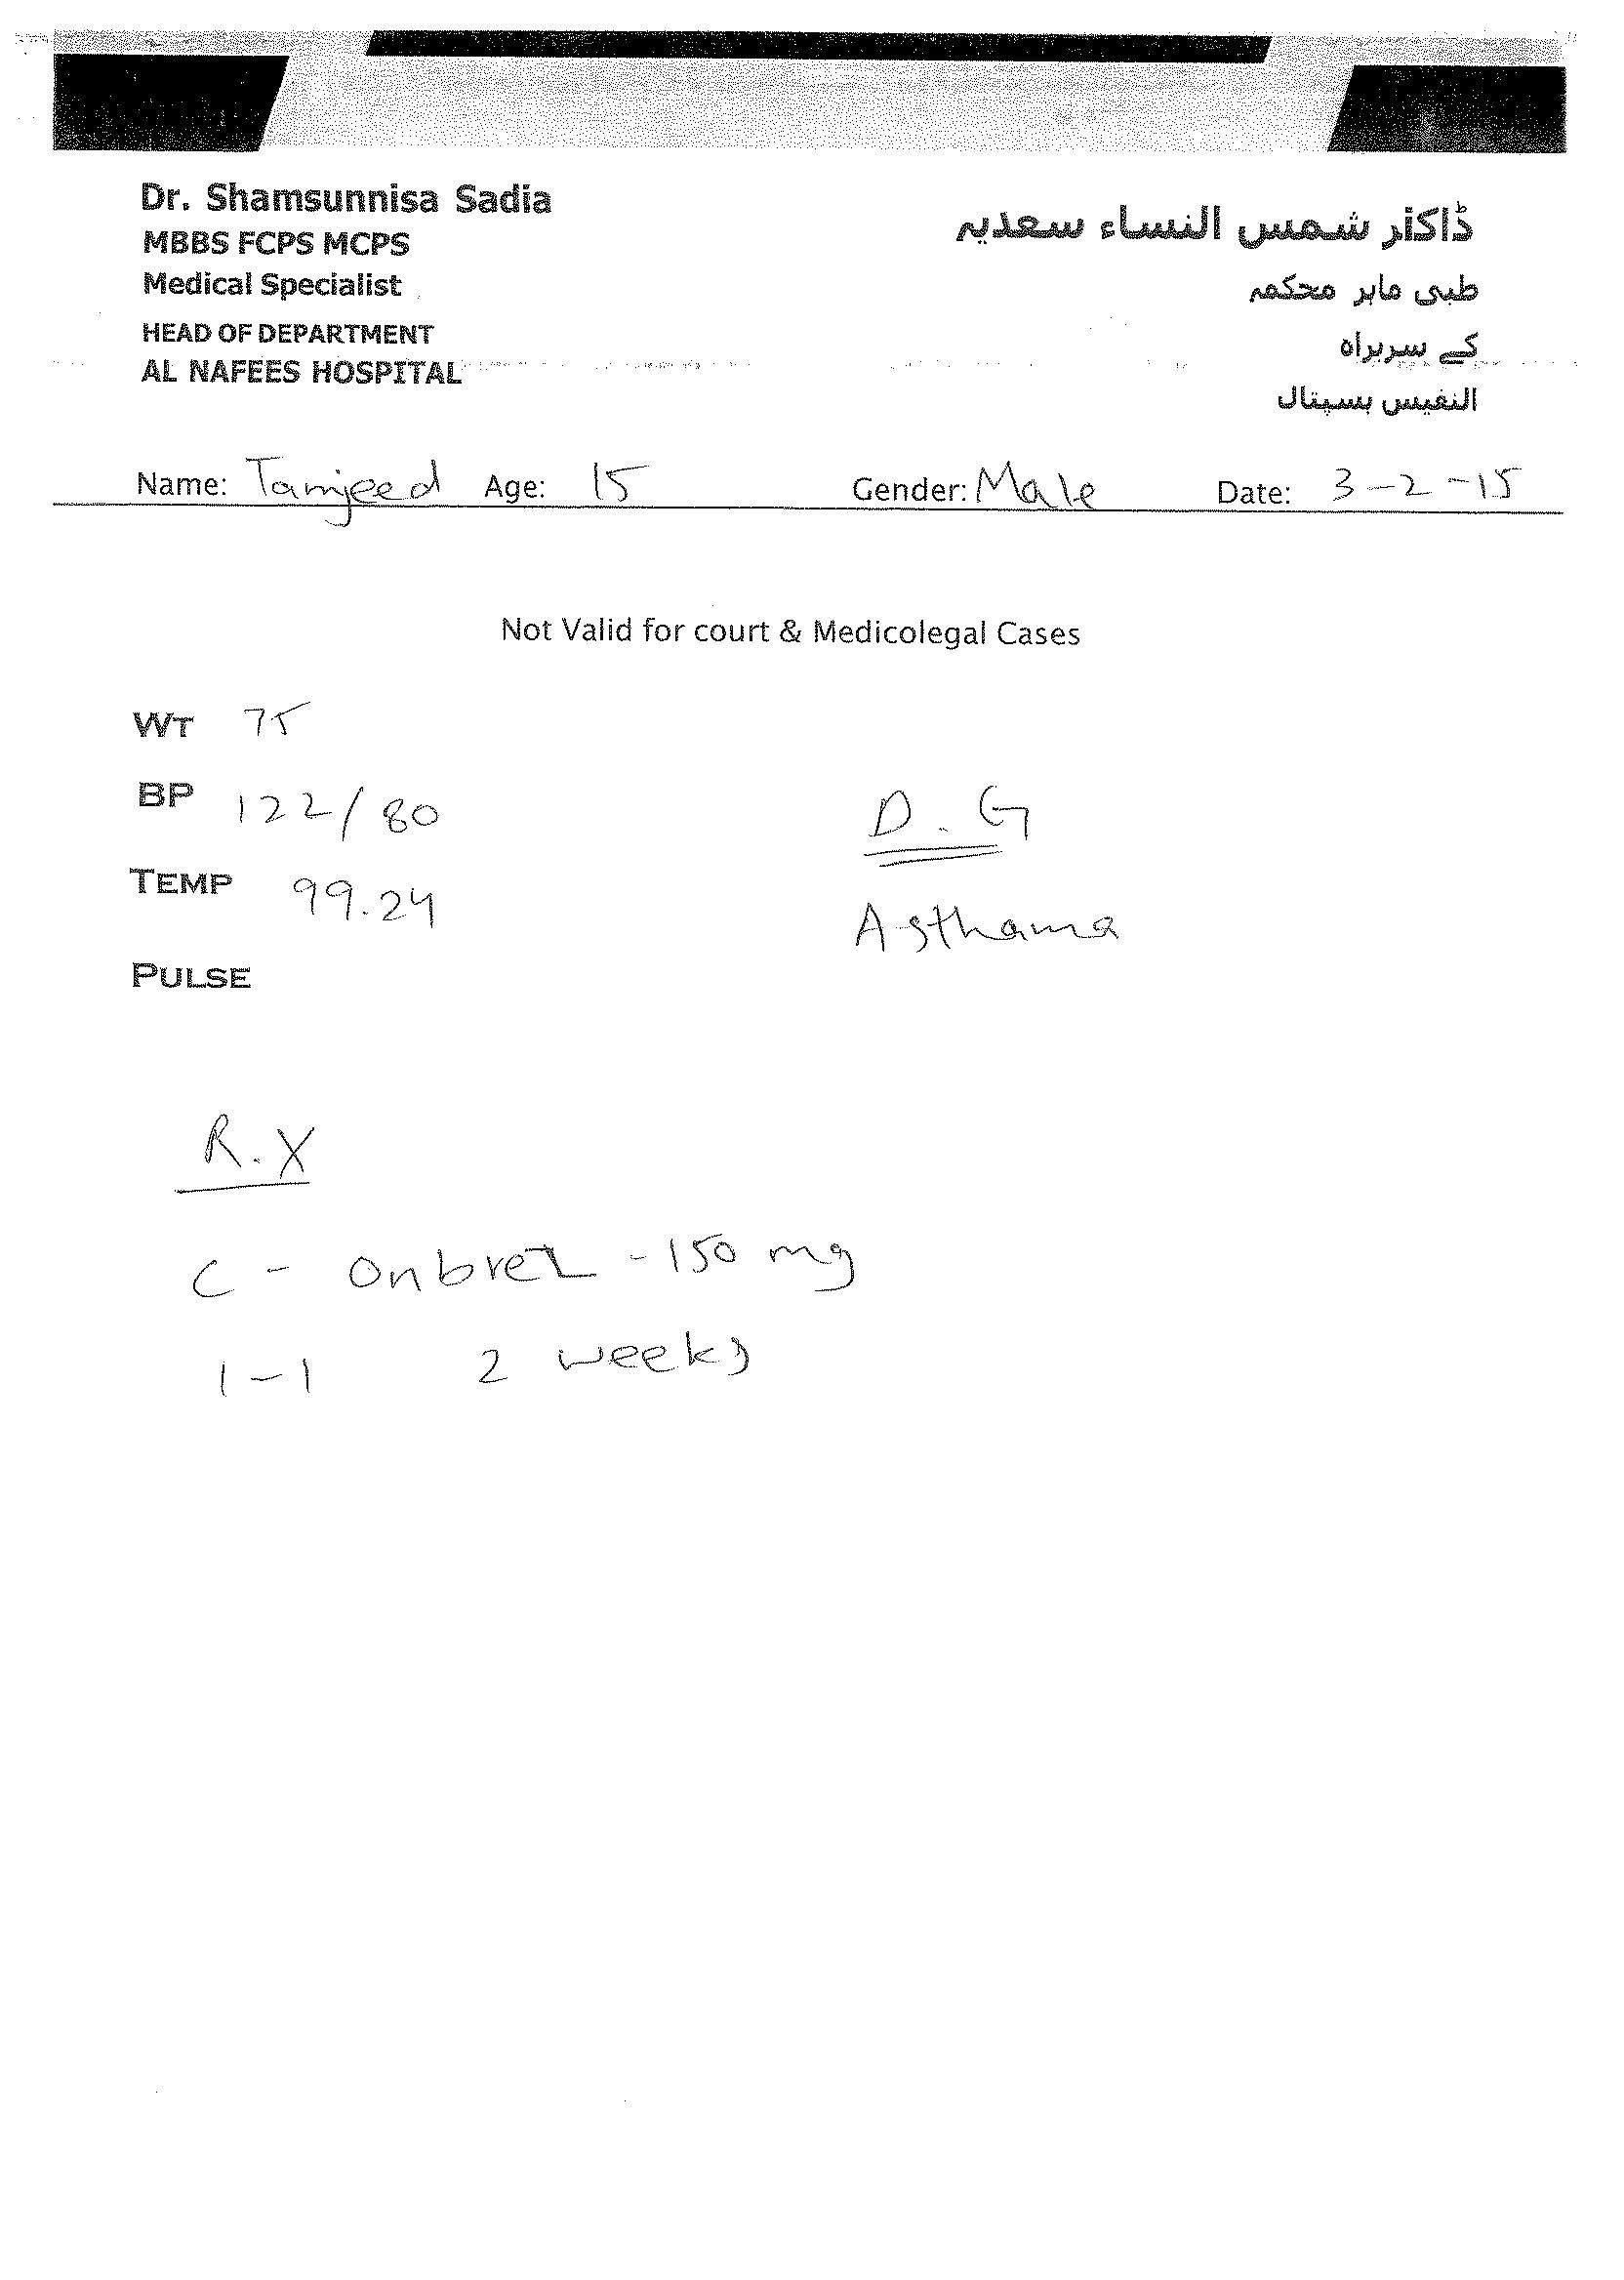 Dr. Shamsunnisa Sadia
MBBS FCPS MCPS
Medical Specialist
HEAD OF DEPARTMENT
AL NAFEES HOSPITAL
ڈاکٹر شمس النساء سعدیہ
طبی ماہر محکمہ
کے سربراہ
النفیس ہسپتال
Name: Tamjeed Age: 15 Gender: Male Date: 3-2-15
Not Valid for court & Medicolegal Cases
WT 75
BP 122/80
TEMP 99.24
PULSE
D.G
Asthama
R.X
C - Onbrez - 150 mg
1-1 2 weeks